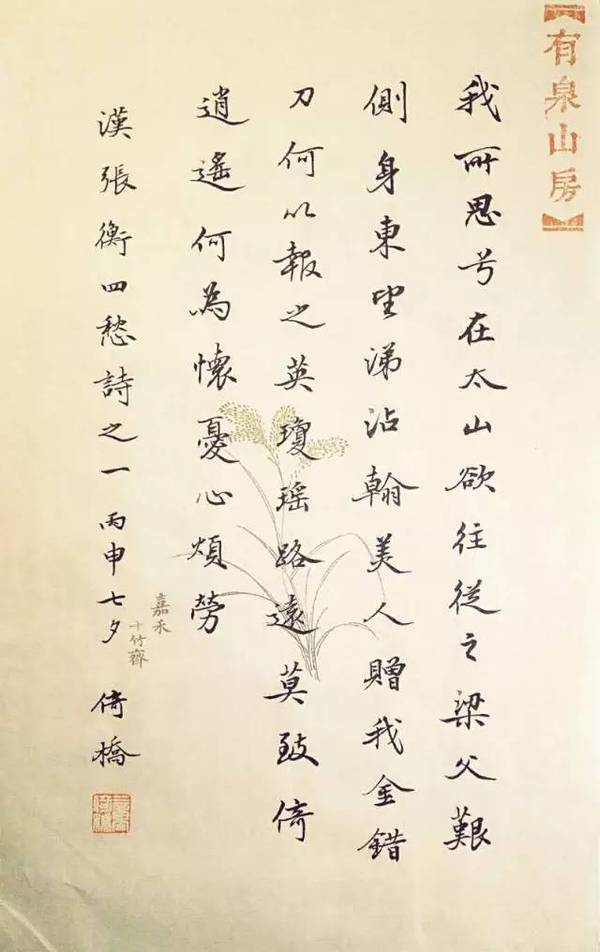 有泉山房
我所思兮在太山欲往從之梁父艱
側身東望涕沾翰美人贈我金錯
刀何以報之英瓊瑤路遠莫致倚
逍遙何為懷憂心煩勞
漢張衡四愁詩之一 丙申七夕 倚橋
嘉禾
十竹齋